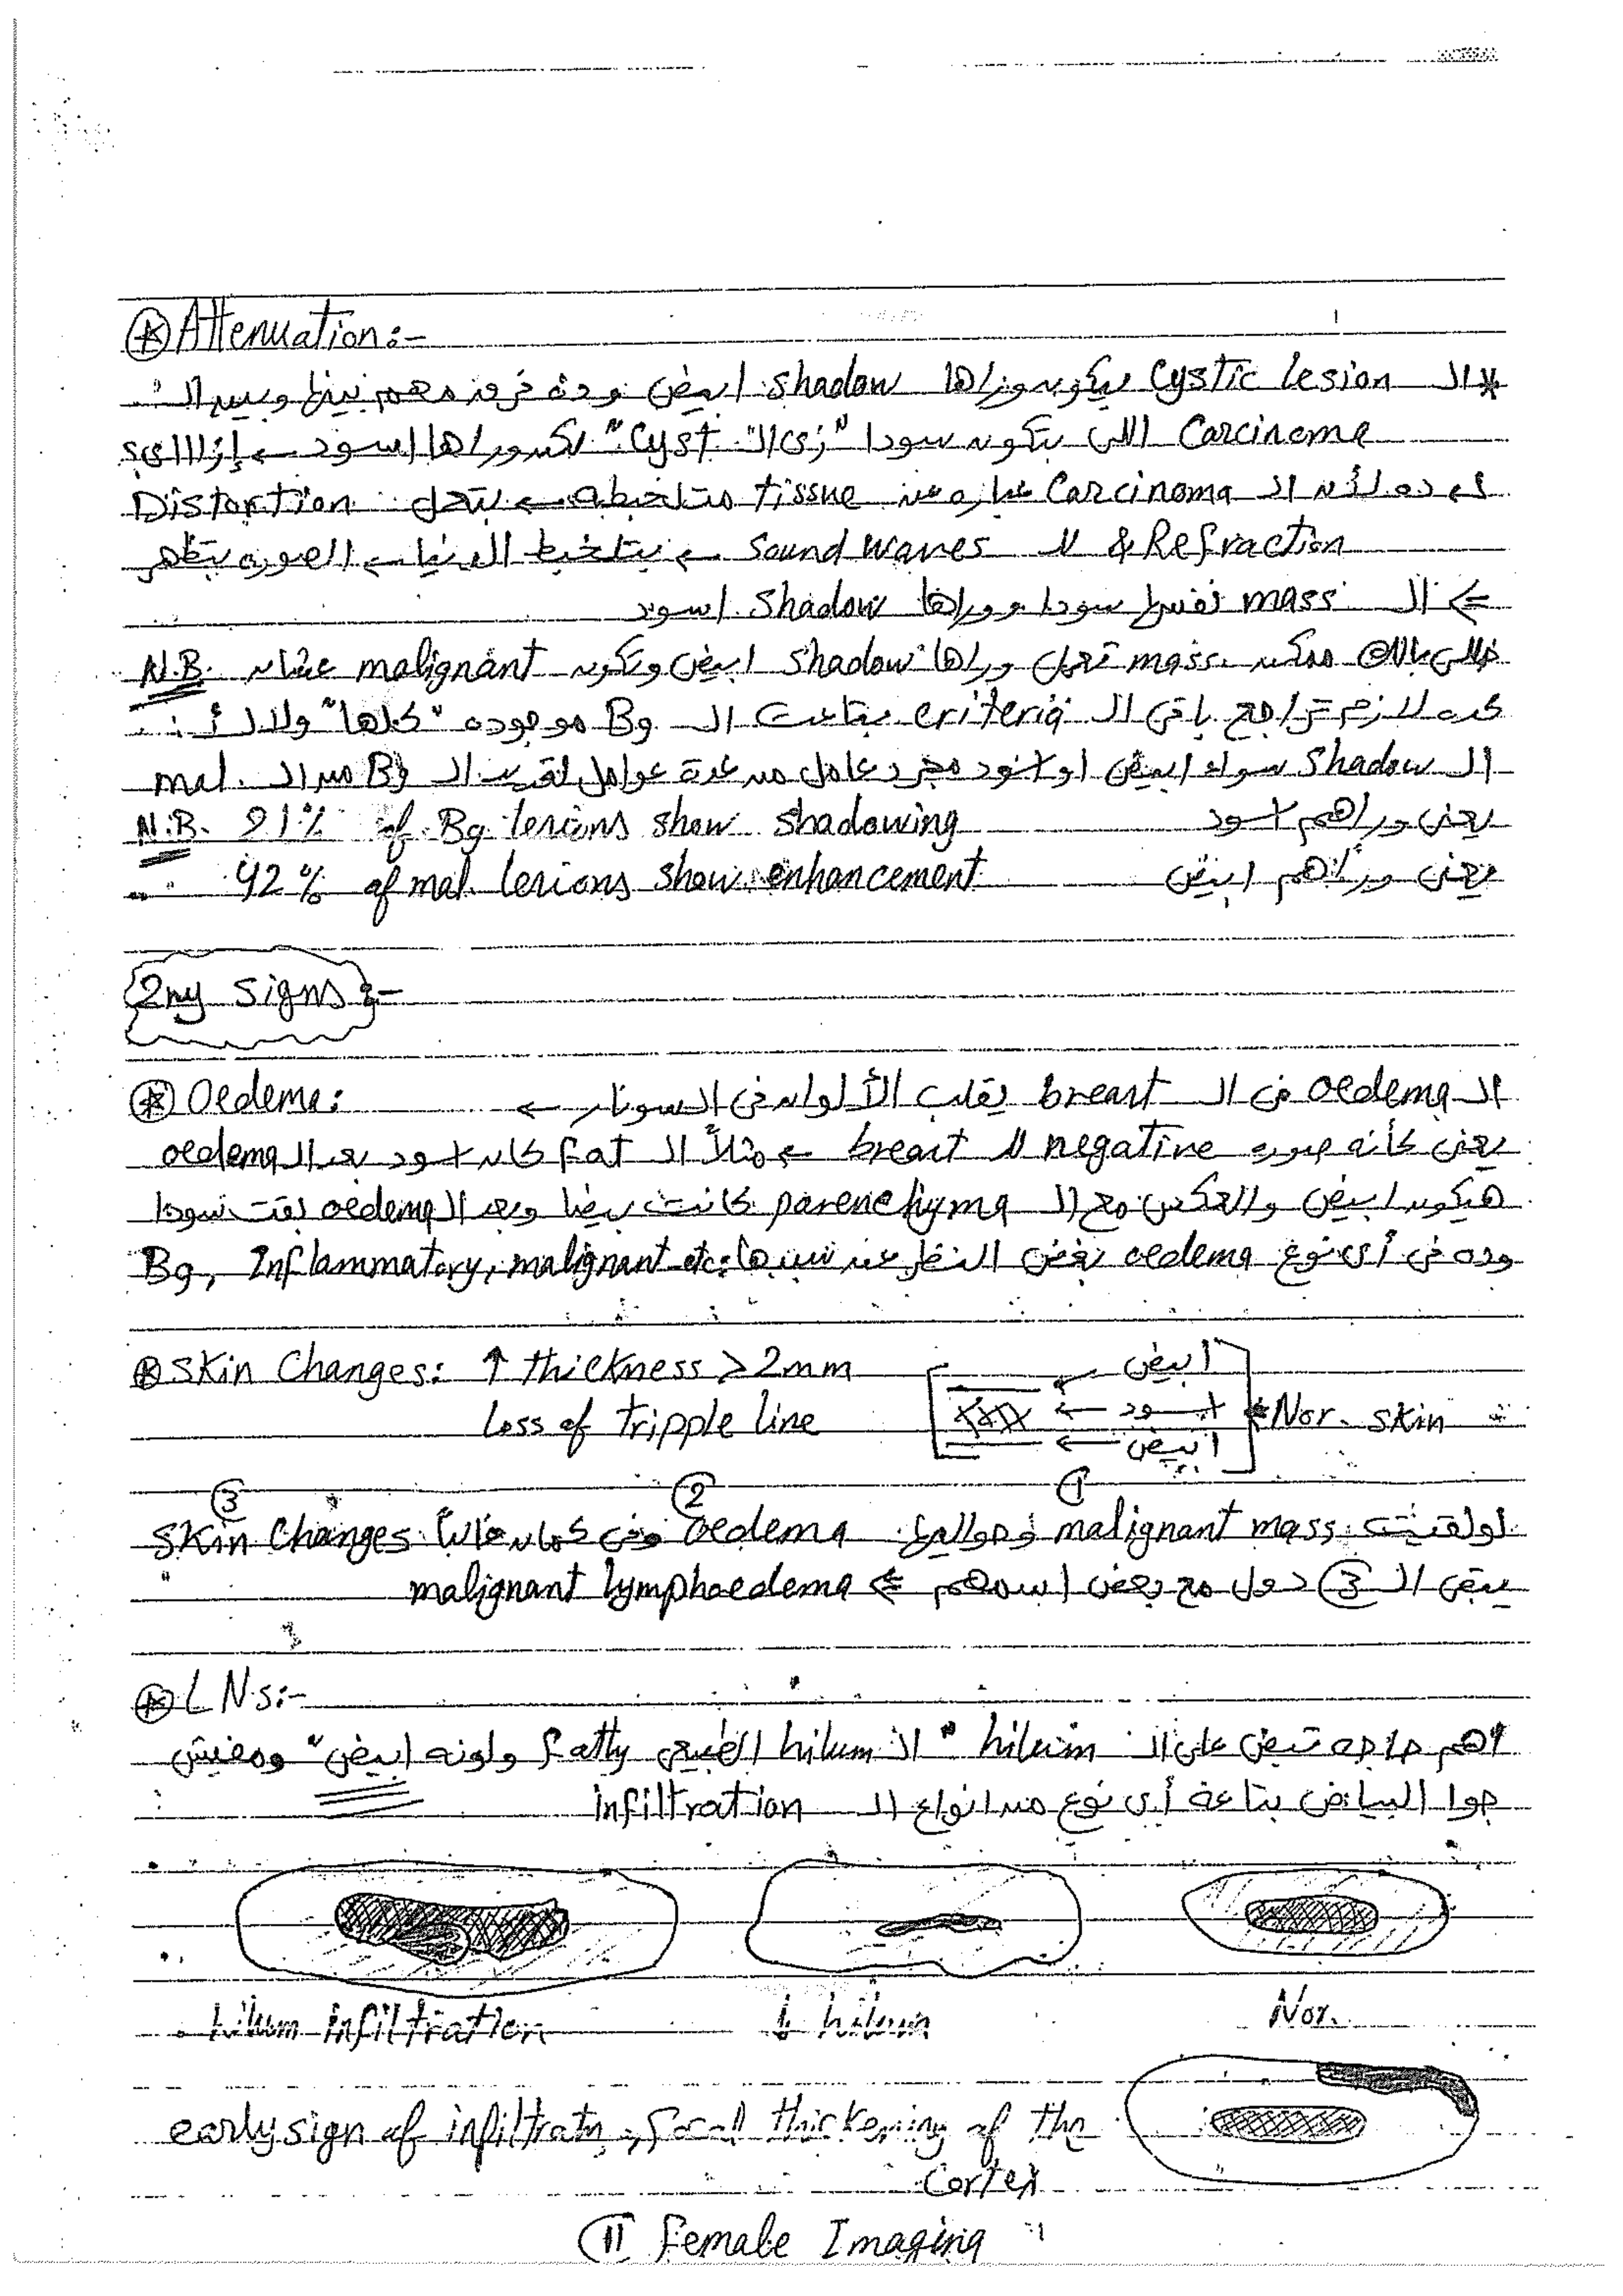 ⊛ Attenuation:-
* الـ Cystic lesion بيكون وراها shadow ابيض وده فرق مهم بينها وبين الـ
Carcinoma اللى بتكون سودا "زى الـ Cyst" لكن وراها اسود ← إزااااى؟
ده لأن الـ Carcinoma عباره عن tissue متلخبطه ← بتعمل Distortion
& Refraction للـ Sound waves ← بتلخبط الدنيا ← الصوره بتظهر
⇐ الـ mass نفسها سودا ووراها shadow اسود
N.B. خللى بالك ممكن mass تعمل وراها shadow ابيض وتكون malignant عشان
كده لازم تراجع باقى الـ criteria بتاعت الـ Bg موجوده "كلها" ولا لأ
الـ shadow سواء ابيض او اسود مجرد عامل من عدة عوامل لقرب الـ Bg من الـ mal.
N.B. 21% of Bg lesions show shadowing يعنى وراهم اسود
42% of mal. lesions show enhancement يعنى وراهم ابيض
2ry Signs :-
⊛ Oedema: الـ oedema فى الـ breast يقلب الألوان فى السونار ←
يعنى كأنه صوره negative للـ breast ← مثلاً الـ fat كان اسود بعد الـ oedema
هيكون ابيض والعكس مع الـ parenchyma كانت بيضا وبعد الـ oedema بقت سودا
وده فى أى نوع oedema بغض النظر عن سببها: Bg, Inflammatory, malignant etc
⊛ Skin Changes: ↑ thickness > 2mm ابيض
اسود Nor. skin
Loss of tripple line ابيض
③ ② ①
لو لقيت malignant mass وحواليها oedema وفى كمان غالباً Skin Changes
يبقى الـ ③ دول مع بعض اسمهم ⇐ malignant lymphoedema
⊛ LNs:-
اهم حاجه تبص على الـ hilum "الـ hilum الطبيعى fatty ولونه ابيض" ومفيش
جوا البياض بتاعة أى نوع من انواع الـ infiltration
hilum infiltration ↓ hilum Nor.
early sign of infiltratn , focal thickening of the
Cortex
⑪ Female Imaging